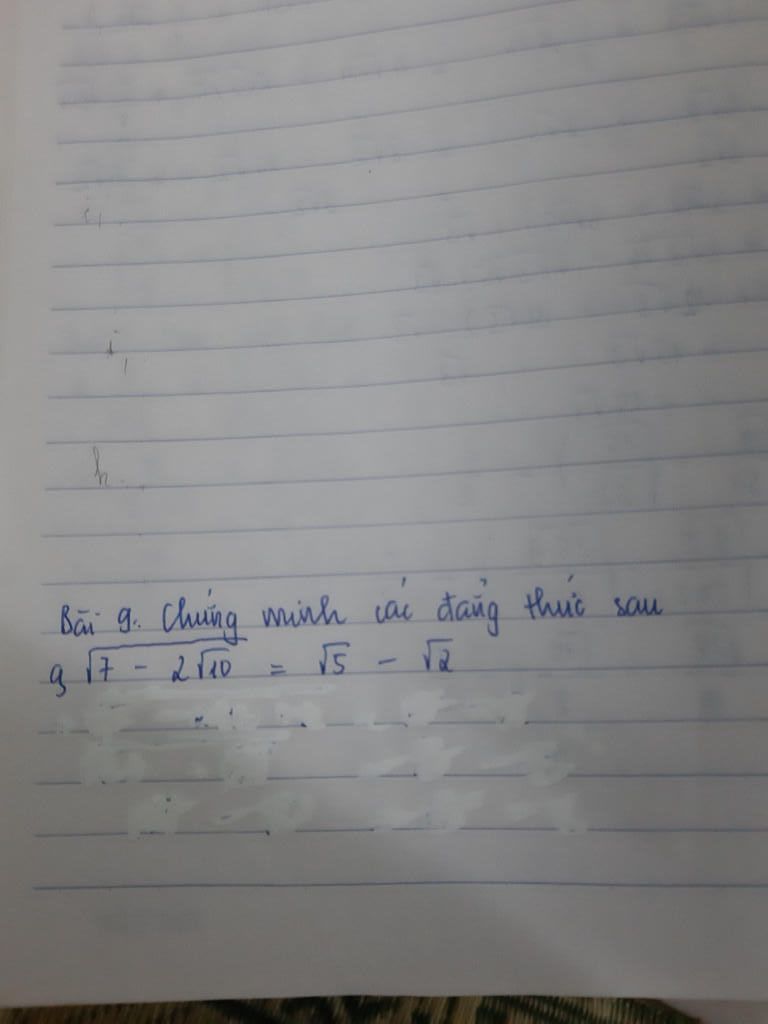 i,
i,
h.
Bài 9. Chứng minh các đẳng thức sau
a, √7 - 2√10 = √5 - √2